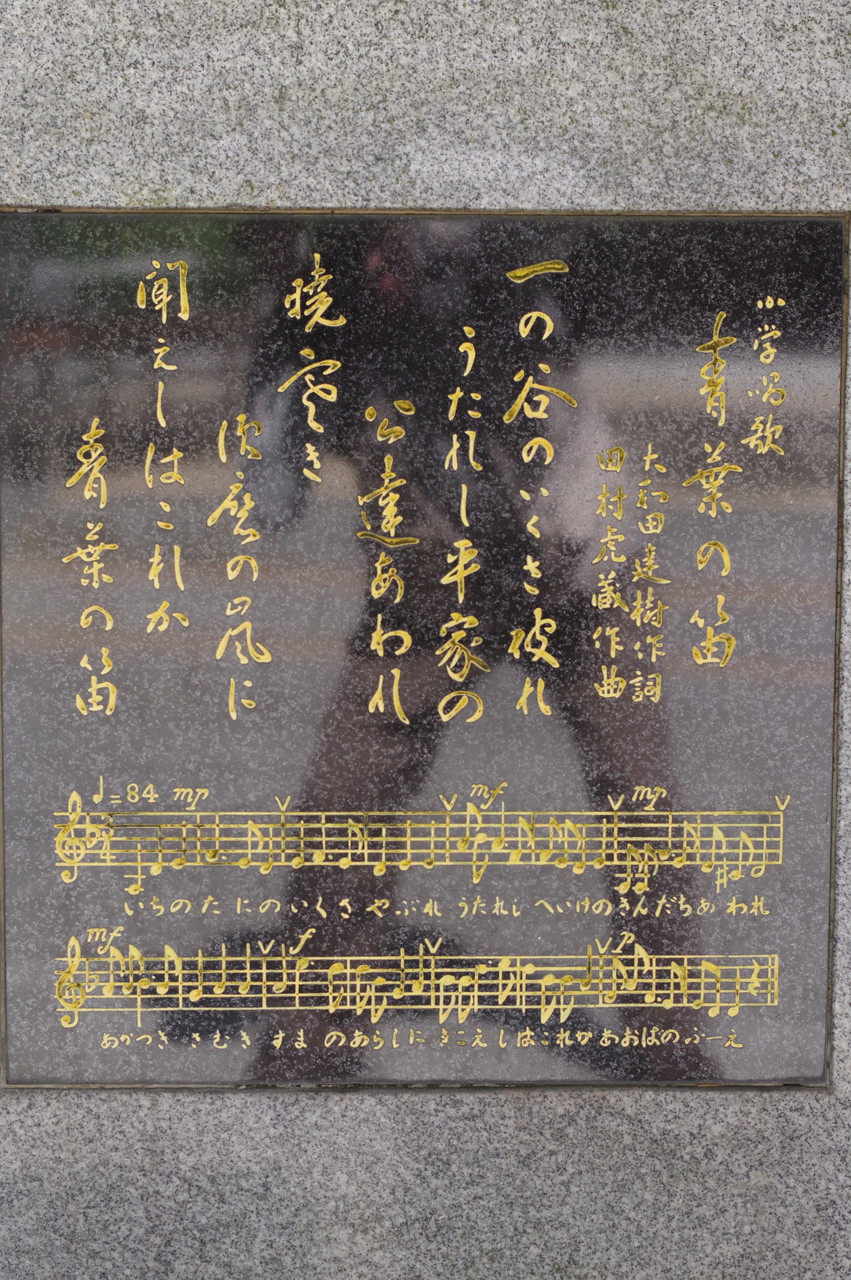 小学唱歌
青葉の笛
大和田建樹作詞
田村虎蔵作曲
一の谷のいくさ破れ
うたれし平家の
公達あわれ
暁寒き
須磨の嵐に
聞えしはこれか
青葉の笛
♩=84 mp mf mp
いちのた にのいくさ やぶれ うたれし へいけのきんだちあ われ
mf f p
あかつき さむき すま のあらしに きこえしはこれか あおばのふーえ